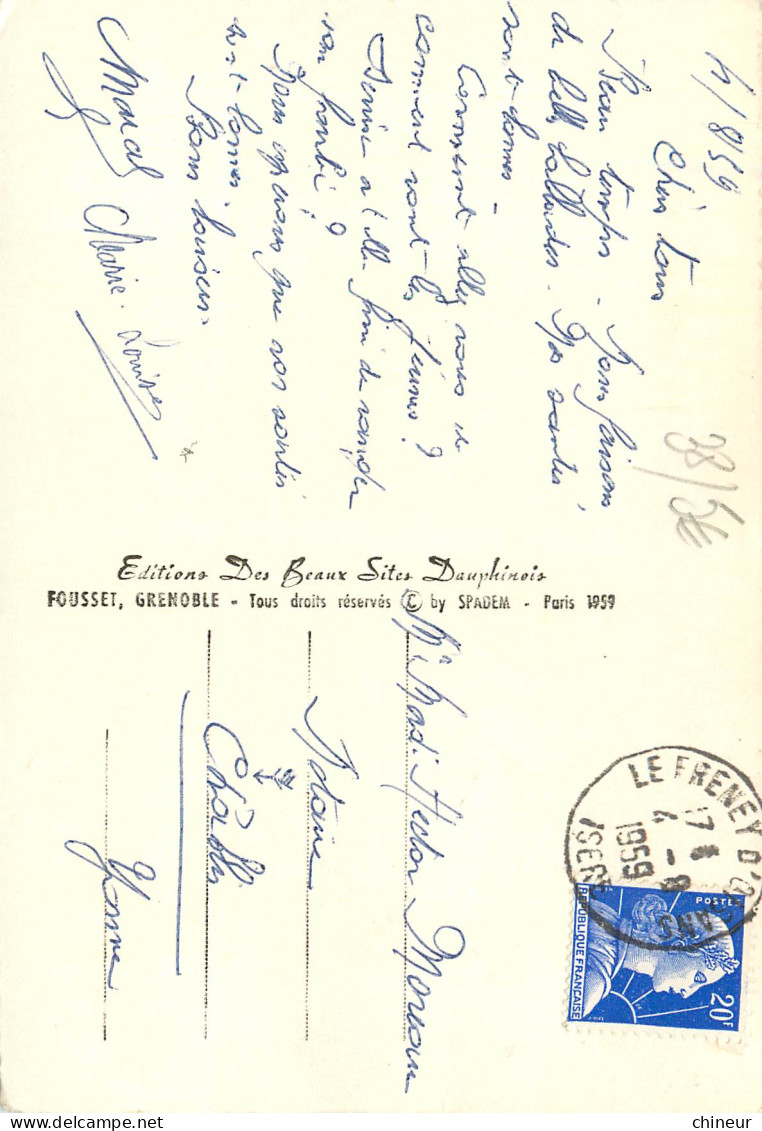 4/8/59
Chers tous
Beau temps - Nous faisons
de belles ballades. Nos santés
sont bonnes -
Comment allez vous et
comment vont les jeunes ?
Denise a t'elle fini de ranger
son fourbi ?
Nous espérons que vos santés
sont bonnes.
Bons baisers.
Marcel Marie-Louise
38/5€
Editions Des Beaux Sites Dauphinois
FOUSSET, GRENOBLE - Tous droits réservés © by SPADEM - Paris 1959
Mr Mad. Hector Moreau
Notaire
Chablis
Yonne
LE FRENEY D'OISANS
17 H
4 - 8
1959
ISERE
POSTES
20F
REPUBLIQUE FRANÇAISE
chineur